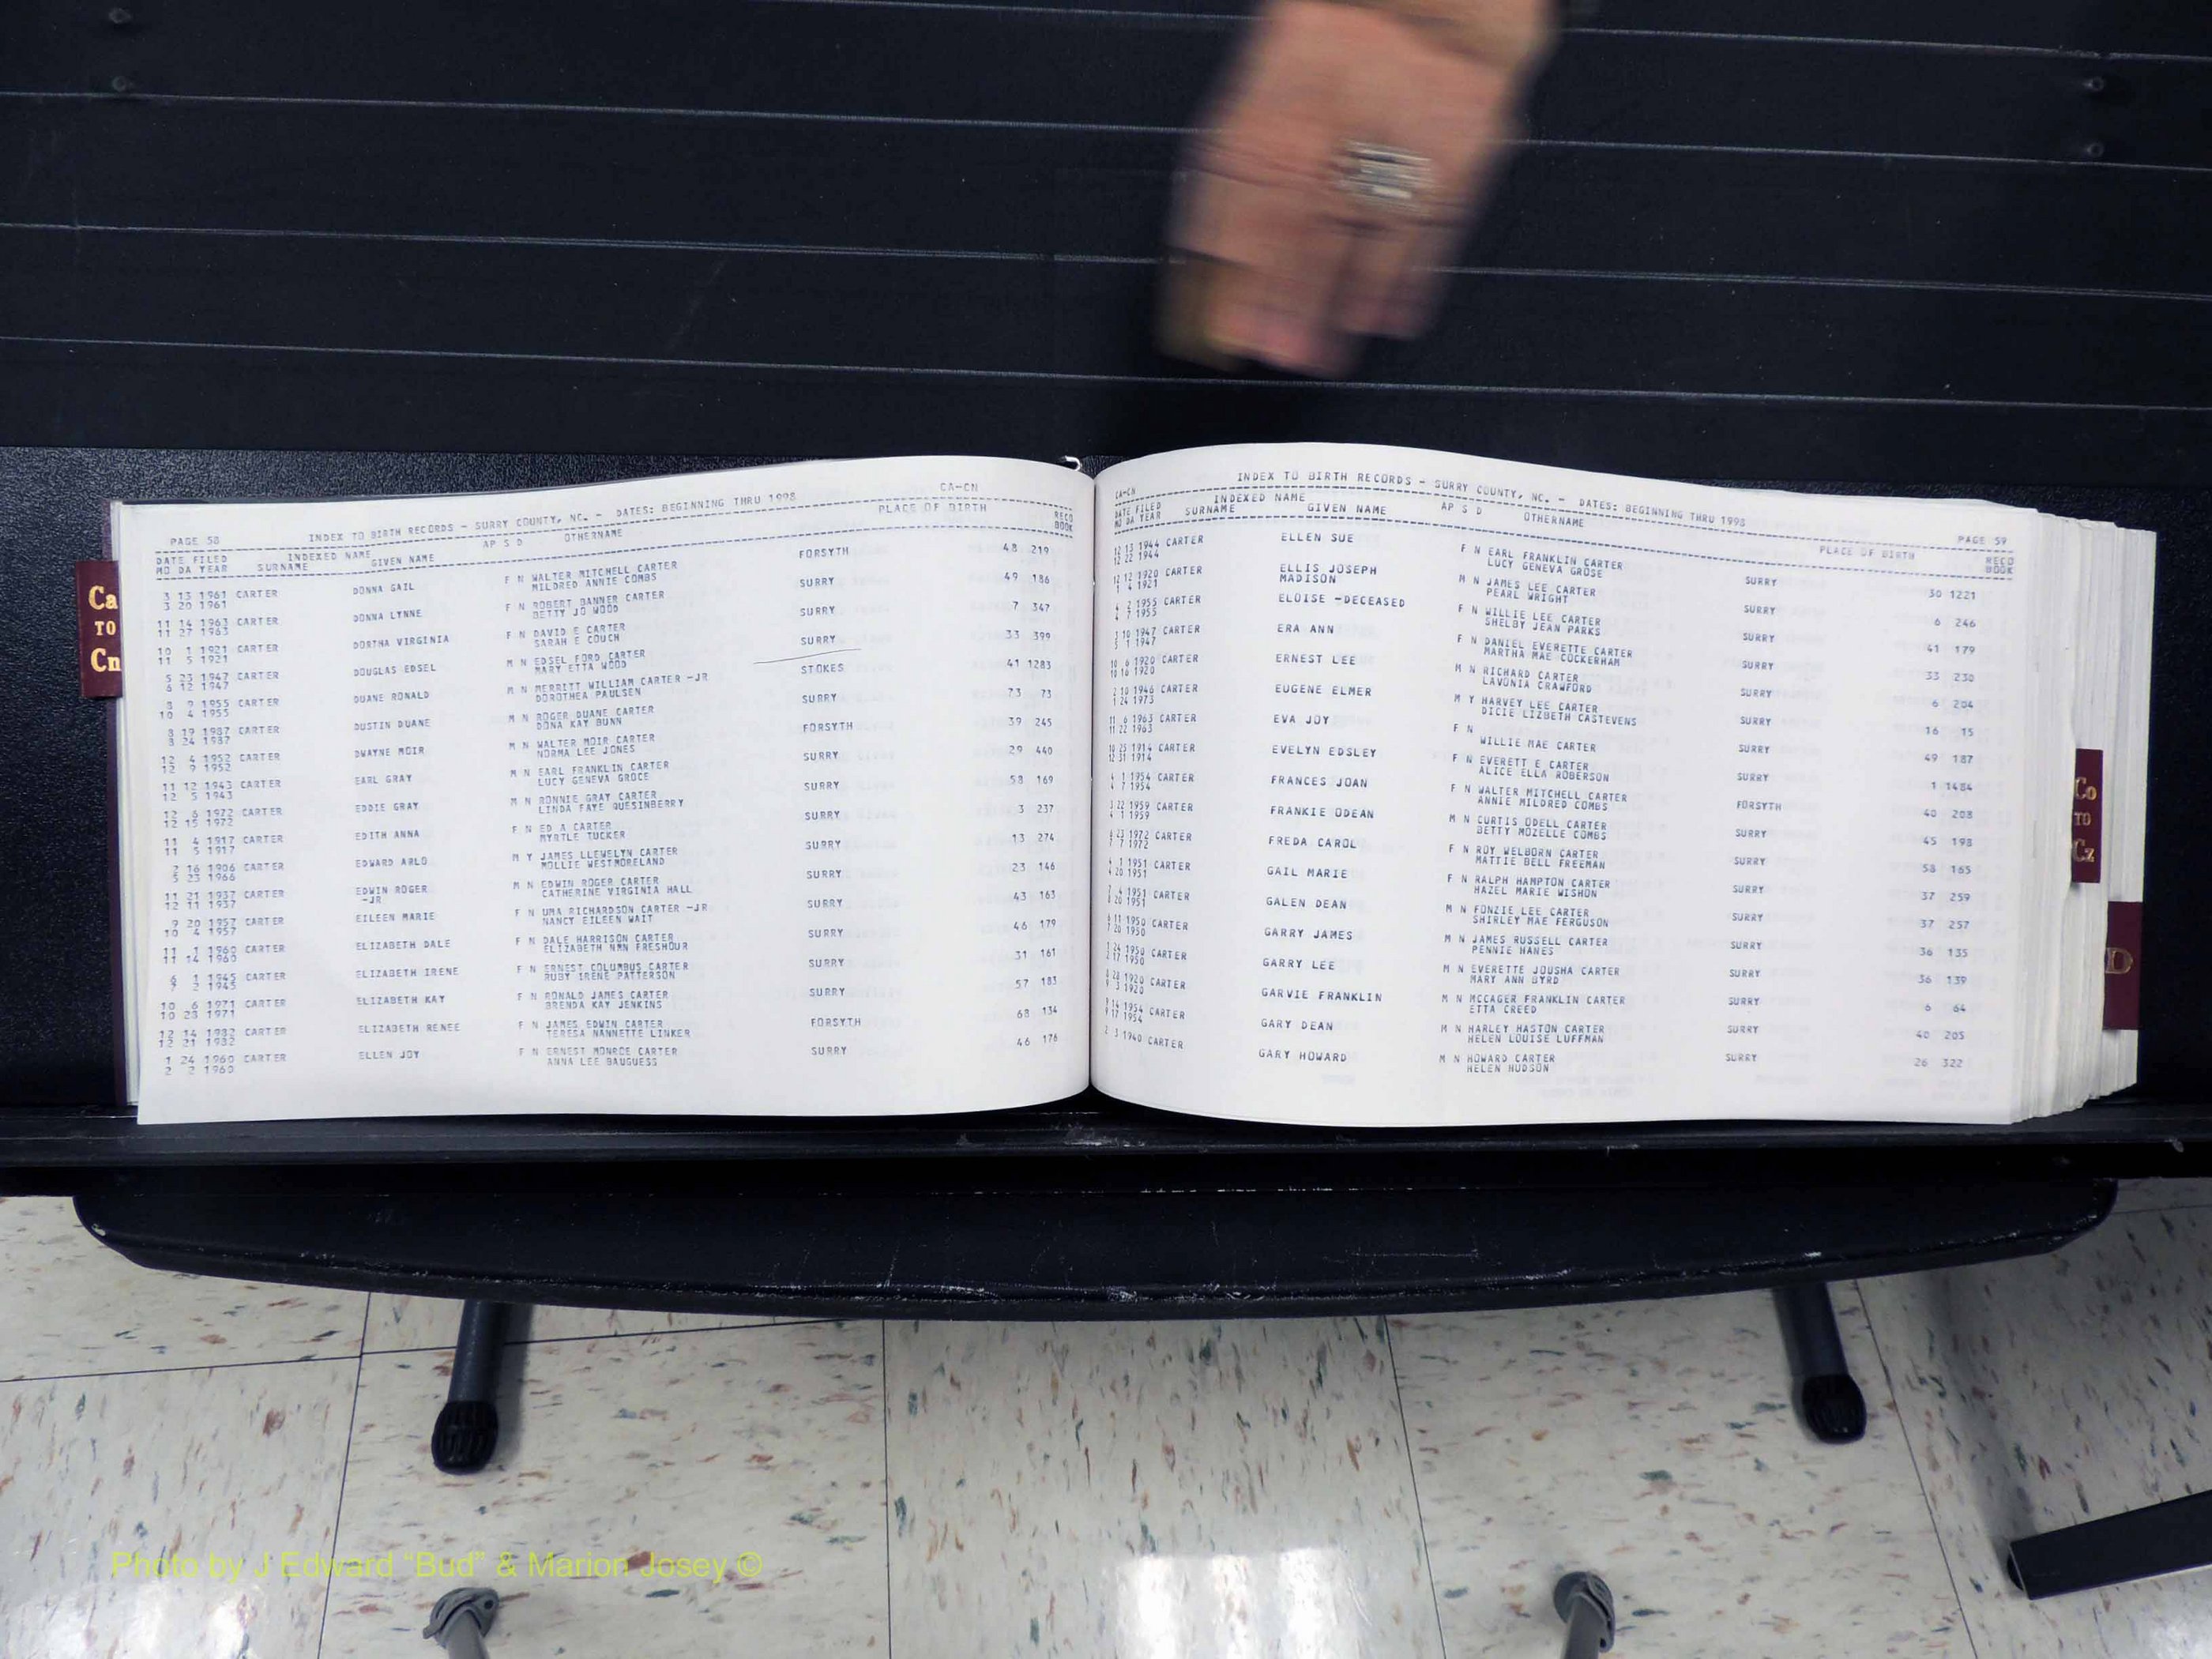 Ca
TO
Cn
PAGE 58 INDEX TO BIRTH RECORDS - SURRY COUNTY, NC. - DATES: BEGINNING THRU 1998 CA-CN
DATE FILED INDEXED NAME AP S D OTHERNAME PLACE OF BIRTH RECO
MO DA YEAR SURNAME GIVEN NAME BOOK
3 13 1961 CARTER DONNA GAIL F N WALTER MITCHELL CARTER FORSYTH 48 219
3 20 1961 MILDRED ANNIE COMBS
11 14 1963 CARTER DONNA LYNNE F N ROBERT BANNER CARTER SURRY 49 186
11 27 1963 BETTY JO WOOD
10 1 1921 CARTER DORTHA VIRGINIA F N DAVID E CARTER SURRY 7 347
11 5 1921 SARAH E COUCH
5 23 1947 CARTER DOUGLAS EDSEL M N EDSEL FORD CARTER SURRY 33 399
6 12 1947 MARY ETTA WOOD
8 9 1955 CARTER DUANE RONALD M N MERRITT WILLIAM CARTER -JR STOKES 41 1283
10 4 1955 DOROTHEA PAULSEN
8 19 1987 CARTER DUSTIN DUANE M N ROGER DUANE CARTER SURRY 73 73
8 24 1987 DONA KAY BUNN
12 4 1952 CARTER DWAYNE MOIR M N WALTER MOIR CARTER FORSYTH 39 245
12 9 1952 NORMA LEE JONES
11 12 1943 CARTER EARL GRAY M N EARL FRANKLIN CARTER SURRY 29 440
12 5 1943 LUCY GENEVA GROCE
12 6 1972 CARTER EDDIE GRAY M N RONNIE GRAY CARTER SURRY 58 169
12 15 1972 LINDA FAYE QUESINBERRY
11 4 1917 CARTER EDITH ANNA F N ED A CARTER SURRY 3 237
11 5 1917 MYRTLE TUCKER
2 16 1906 CARTER EDWARD ARLO M Y JAMES LLEWELYN CARTER SURRY 13 274
5 23 1966 MOLLIE WESTMORELAND
11 21 1937 CARTER EDWIN ROGER M N EDWIN ROGER CARTER SURRY 23 146
12 11 1937 -JR CATHERINE VIRGINIA HALL
9 20 1957 CARTER EILEEN MARIE F N UMA RICHARDSON CARTER -JR SURRY 43 163
10 4 1957 NANCY EILEEN WAIT
11 1 1960 CARTER ELIZABETH DALE F N DALE HARRISON CARTER SURRY 46 179
11 14 1960 ELIZABETH NMN FRESHOUR
6 1 1945 CARTER ELIZABETH IRENE F N ERNEST COLUMBUS CARTER SURRY 31 161
7 2 1945 RUBY IRENE PATTERSON
10 6 1971 CARTER ELIZABETH KAY F N RONALD JAMES CARTER SURRY 57 183
10 28 1971 BRENDA KAY JENKINS
12 14 1982 CARTER ELIZABETH RENEE F N JAMES EDWIN CARTER FORSYTH 68 134
12 21 1982 TERESA NANNETTE LINKER
1 24 1960 CARTER ELLEN JOY F N ERNEST MONROE CARTER SURRY 46 176
2 2 1960 ANNA LEE BAUGUESS
CA-CN INDEX TO BIRTH RECORDS - SURRY COUNTY, NC. - DATES: BEGINNING THRU 1998 PAGE 59
DATE FILED INDEXED NAME AP S D OTHERNAME PLACE OF BIRTH RECO
MO DA YEAR SURNAME GIVEN NAME BOOK
12 13 1944 CARTER ELLEN SUE F N EARL FRANKLIN CARTER SURRY 30 1221
12 22 1944 LUCY GENEVA GROSE
12 12 1920 CARTER ELLIS JOSEPH M N JAMES LEE CARTER SURRY 6 246
1 4 1921 MADISON PEARL WRIGHT
4 2 1955 CARTER ELOISE -DECEASED F N WILLIE LEE CARTER SURRY 41 179
4 7 1955 SHELBY JEAN PARKS
3 10 1947 CARTER ERA ANN F N DANIEL EVERETTE CARTER SURRY 33 230
5 1 1947 MARTHA MAE COCKERHAM
10 6 1920 CARTER ERNEST LEE M N RICHARD CARTER SURRY 6 204
10 16 1920 LAVONIA CRAWFORD
2 10 1946 CARTER EUGENE ELMER M Y HARVEY LEE CARTER SURRY 16 15
1 24 1973 DICIE LIZBETH CASTEVENS
11 6 1963 CARTER EVA JOY F N SURRY 49 187
11 22 1963 WILLIE MAE CARTER
10 25 1914 CARTER EVELYN EDSLEY F N EVERETT E CARTER SURRY 1 1484
12 31 1914 ALICE ELLA ROBERSON
4 1 1954 CARTER FRANCES JOAN F N WALTER MITCHELL CARTER FORSYTH 40 208
4 7 1954 ANNIE MILDRED COMBS
3 22 1959 CARTER FRANKIE ODEAN M N CURTIS ODELL CARTER SURRY 45 198
4 1 1959 BETTY MOZELLE COMBS
6 23 1972 CARTER FREDA CAROL F N ROY WELBORN CARTER SURRY 58 165
7 7 1972 MATTIE BELL FREEMAN
4 1 1951 CARTER GAIL MARIE F N RALPH HAMPTON CARTER SURRY 37 259
4 20 1951 HAZEL MARIE WISHON
7 4 1951 CARTER GALEN DEAN M N FONZIE LEE CARTER SURRY 37 257
8 20 1951 SHIRLEY MAE FERGUSON
6 11 1950 CARTER GARRY JAMES M N JAMES RUSSELL CARTER SURRY 36 135
7 20 1950 PENNIE HANES
1 24 1950 CARTER GARRY LEE M N EVERETTE JOUSHA CARTER SURRY 36 139
2 17 1950 MARY ANN BYRD
8 28 1920 CARTER GARVIE FRANKLIN M N MCCAGER FRANKLIN CARTER SURRY 6 64
9 3 1920 ETTA CREED
9 14 1954 CARTER GARY DEAN M N HARLEY HASTON CARTER SURRY 40 205
9 17 1954 HELEN LOUISE LUFFMAN
2 3 1940 CARTER GARY HOWARD M N HOWARD CARTER SURRY 26 322
HELEN HUDSON
Co
TO
Cz
D
Photo by J Edward “Bud” & Marion Josey ©